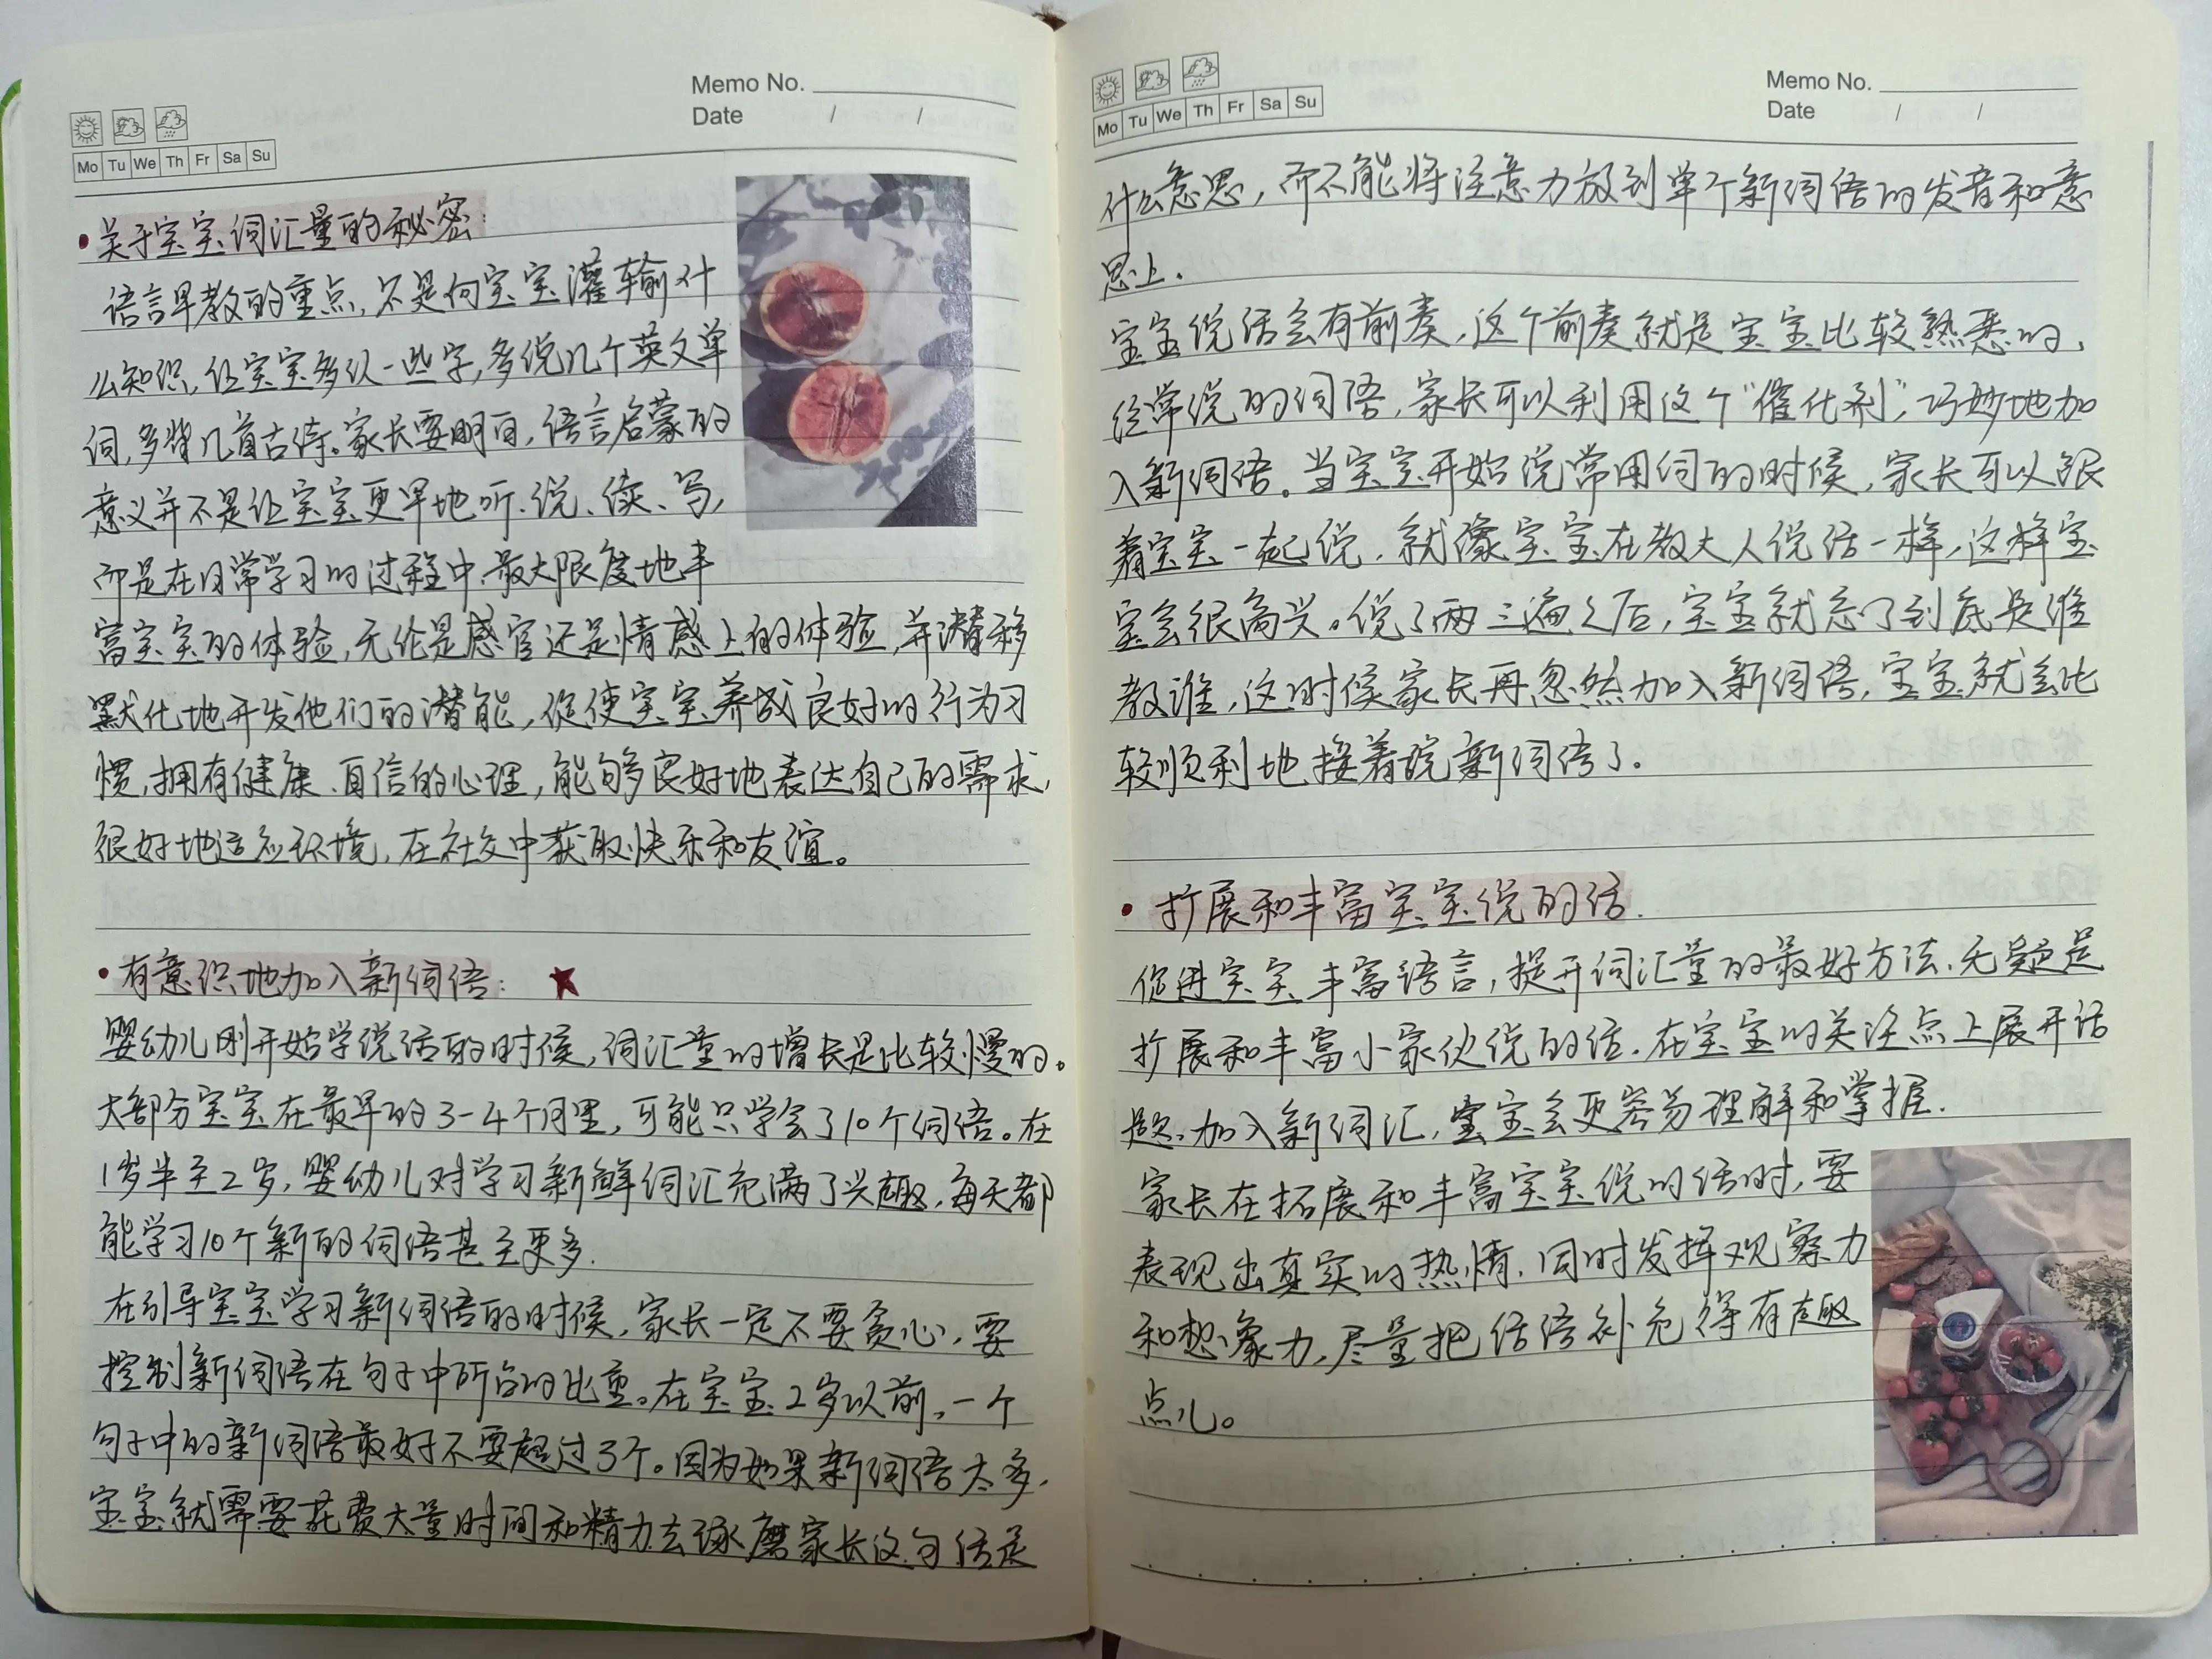 Memo No.
Date / /
Mo Tu We Th Fr Sa Su
•关于宝宝词汇量的秘密:
语言早教的重点,不是向宝宝灌输什
么知识,让宝宝多认一些字,多说几个英文单
词,多背几首古诗。家长要明白,语言启蒙的
意义并不是让宝宝更早地听、说、读、写,
而是在日常学习的过程中,最大限度地丰
富宝宝的体验,无论是感官还是情感上的体验,并潜移
默化地开发他们的潜能,促使宝宝养成良好的行为习
惯,拥有健康、自信的心理,能够良好地表达自己的需求,
很好地适应环境,在社交中获取快乐和友谊。
•有意识地加入新词语: ★
婴幼儿刚开始学说话的时候,词汇量的增长是比较慢的。
大部分宝宝在最早的3-4个月里,可能只学会了10个词语。在
1岁半至2岁,婴幼儿对学习新鲜词汇充满了兴趣,每天都
能学习10个新的词语甚至更多.
在引导宝宝学习新词语的时候,家长一定不要贪心,要
控制新词语在句子中所占的比重。在宝宝2岁以前,一个
句子中的新词语最好不要超过3个。因为如果新词语太多,
宝宝就需要花费大量时间和精力去琢磨家长这句话是
Memo No.
Date / /
Mo Tu We Th Fr Sa Su
什么意思,而不能将注意力放到单个新词语的发音和意
思上.
宝宝说话会有前奏,这个前奏就是宝宝比较熟悉的、
经常说的词语,家长可以利用这个"催化剂",巧妙地加
入新词语。当宝宝开始说常用词的时候,家长可以跟
着宝宝一起说,就像宝宝在教大人说话一样,这样宝
宝会很高兴。说了两三遍之后,宝宝就忘了到底是谁
教谁,这时候家长再忽然加入新词语,宝宝就会比
较顺利地接着说新词语了.
•扩展和丰富宝宝说的话.
促进宝宝丰富语言,提升词汇量的最好方法,无疑是
扩展和丰富小家伙说的话.在宝宝的关注点上展开话
题,加入新词汇,宝宝会更容易理解和掌握.
家长在拓展和丰富宝宝说的话时,要
表现出真实的热情,同时发挥观察力
和想象力,尽量把话语补充得有趣
点儿。